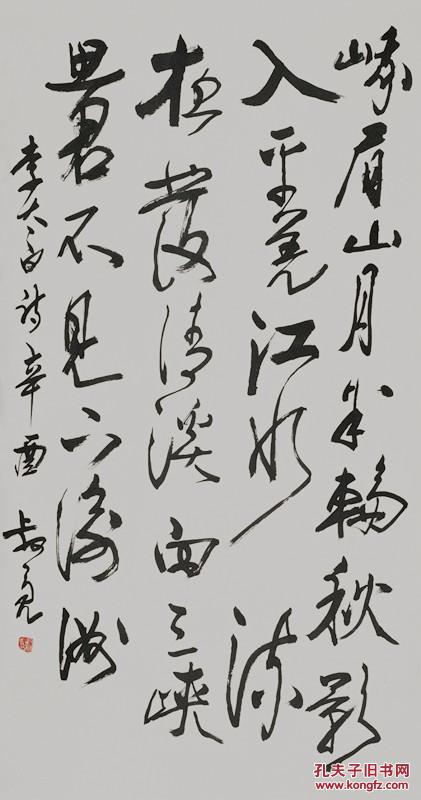 峨眉山月半輪秋影
入平羌江水流
夜發清溪向三峽
思君不見下渝州
李太白詩辛酉 叔亮
孔夫子旧书网
WWW.KONGFZ.COM